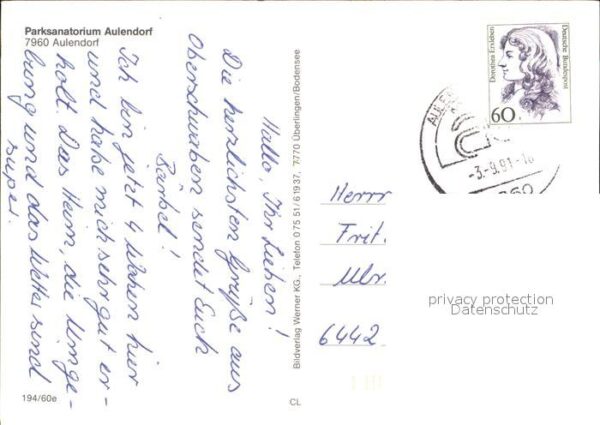 Parksanatorium Aulendorf
7960 Aulendorf
Hallo, Ihr Lieben!
Die herzlichsten Grüße aus
Oberschwaben sendet Euch
Bärbel!
Ich bin jetzt 4 Wochen hier
und habe mich sehr gut er-
holt. Das Heim, die Umge-
bung und das Wetter sind
super.
194/60e
CL
Bildverlag Werner KG., Telefon 0 75 51/6 19 37, 7770 Überlingen/Bodensee
Dorothea Erxleben
Deutsche Bundespost
60
-3.-9.91-
Herrr
Frit.
Ulr.
6442
privacy protection
Datenschutz